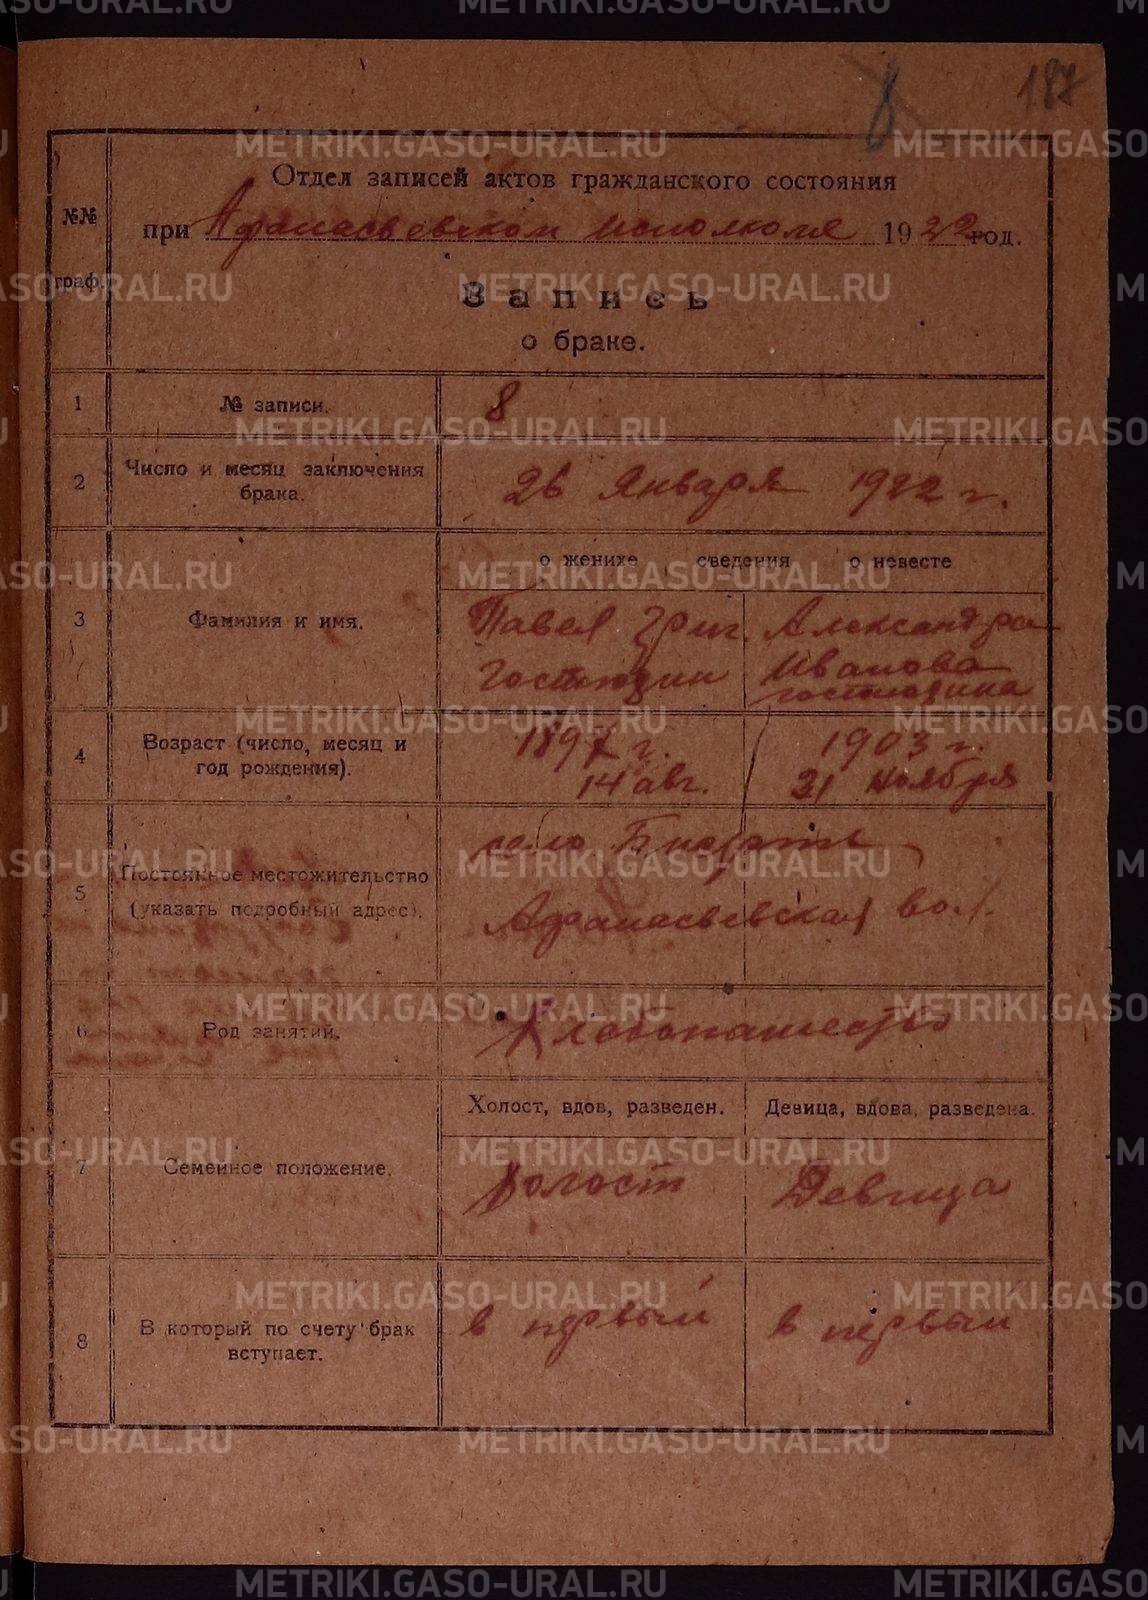 187
8
№№
граф.
Отдел записей актов гражданского состояния
при Афанасьевском исполкоме 1922 год.
Запись
о браке.
1
№ записи.
8
2
Число и месяц заключения
брака.
26 Января 1922 г.
о женихе сведения о невесте
3
Фамилия и имя.
Павел Григ.
Гостюхин
Александра
Иванова
4
Возраст (число, месяц и
год рождения).
1897 г.
14 авг.
1903 г.
21 Ноября
5
Постоянное местожительство
(указать подробный адрес).
село
Афанасьевская вол.
6
Род занятий.
Хлебопашество
7
Семейное положение.
Холост, вдов, разведен.
Девица, вдова, разведена.
Холост
Девица
8
В который по счету брак
вступает.
в первый
в первый
METRIKI.GASO-URAL.RU